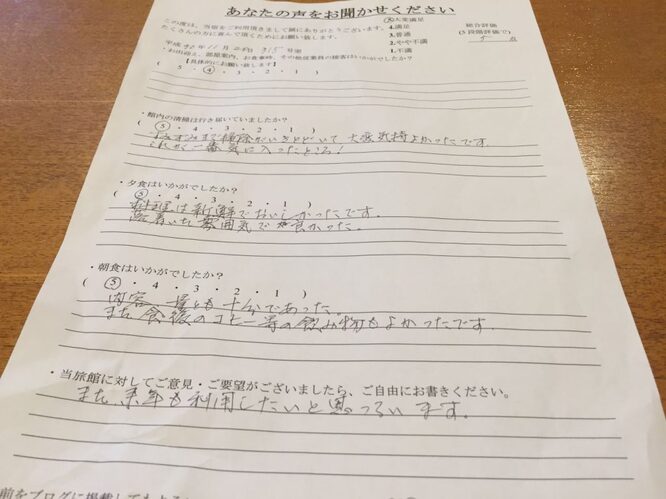 あなたの声をお聞かせください
この度は、当宿をご利用頂きまして誠にありがとうございます。
たくさんの方に喜んで頂くためにお願い致します。
⑤大変満足
4.満足
3.普通
2.やや不満
1.不満
総合評価
(5段階評価で)
5 点
平成30年11月 315号室
・お出迎え、部屋案内、お食事時、その他従業員の接客はいかがでしたか？
【具体的にお願い致します】
( 5 ・ ④ ・ 3 ・ 2 ・ 1 )
・館内の清掃は行き届いていましたか？
( ⑤ ・ 4 ・ 3 ・ 2 ・ 1 )
すみずみまで掃除がいきとどいて大変気持よかったです。
これが一番気に入ったところ!
・夕食はいかがでしたか？
( ⑤ ・ 4 ・ 3 ・ 2 ・ 1 )
料理は新鮮でおいしかったです。
落着いた雰囲気で良かった。
・朝食はいかがでしたか？
( ⑤ ・ 4 ・ 3 ・ 2 ・ 1 )
内容、量とも十分であった。
また食後のコヒー等の飲み物もよかったです
・当旅館に対してご意見・ご要望がございましたら、ご自由にお書きください。
また来年も利用したいと思っています。
前をブログに掲載しても